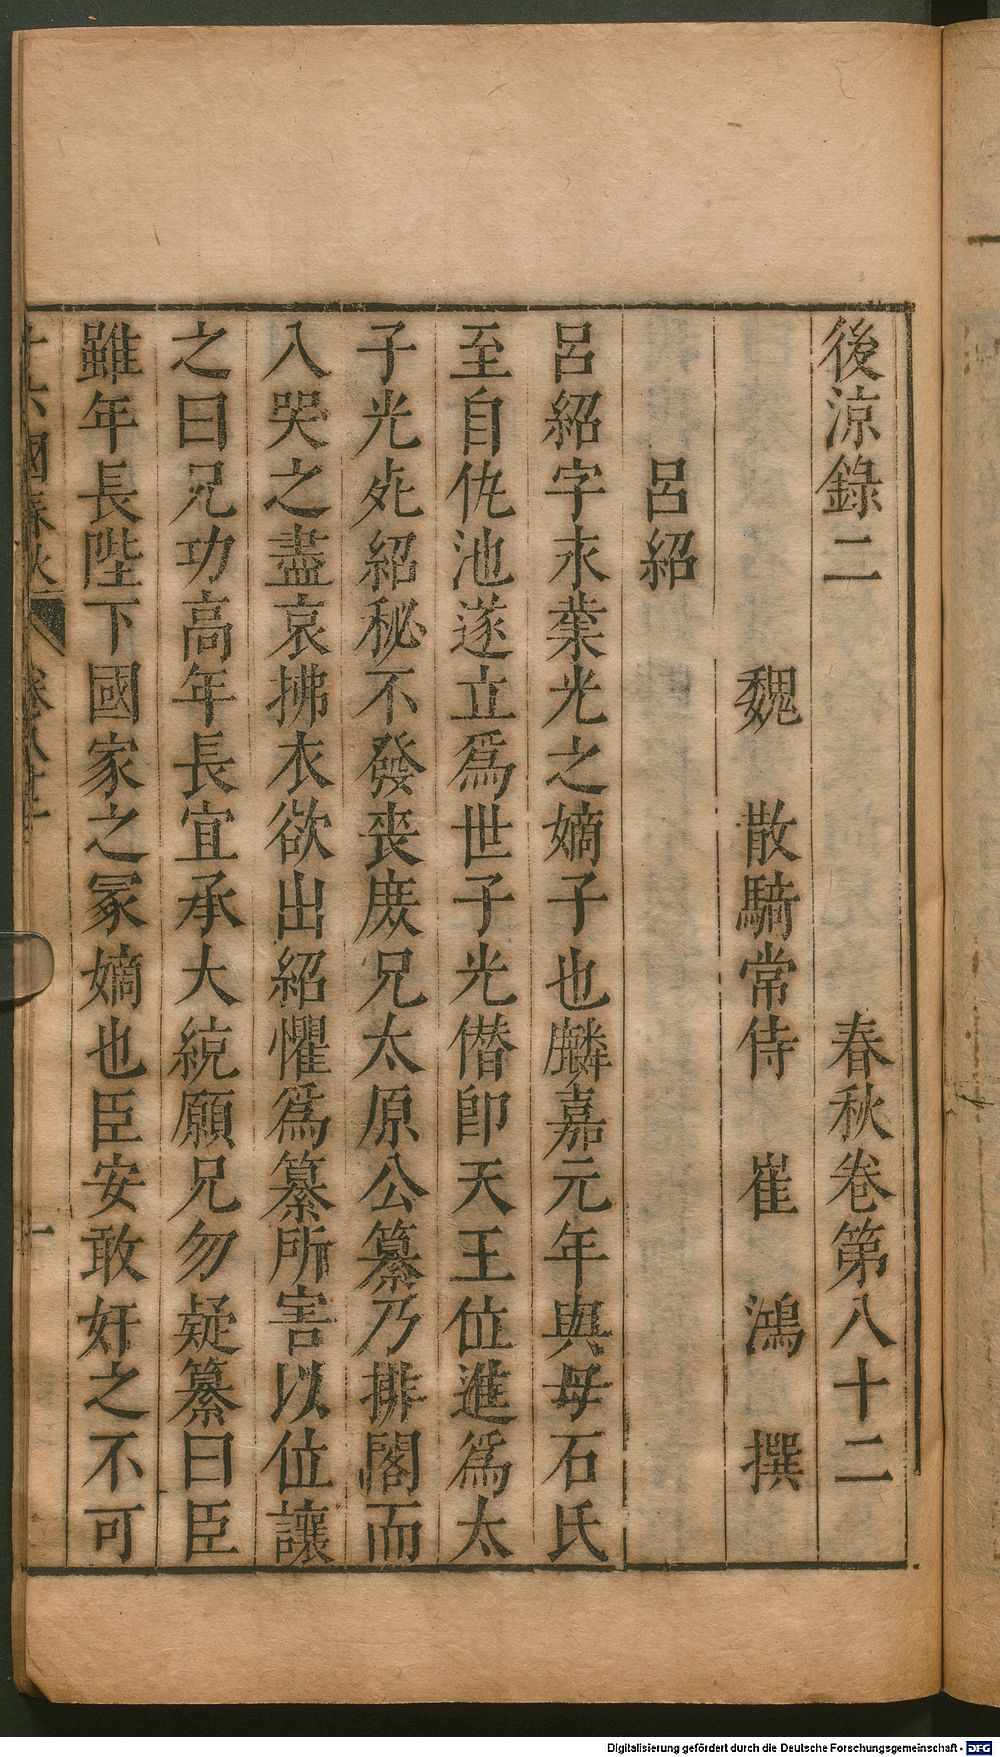 後涼錄二　春秋卷第八十二
魏　散騎常侍　崔　鴻　撰
呂紹
呂紹字永業光之嫡子也麟嘉元年與母石氏
至自仇池遂立爲世子光僭卽天王位進爲太
子光死紹秘不發喪庶兄太原公纂乃排閤而
入哭之盡哀拂衣欲出紹懼爲纂所害以位讓
之曰兄功高年長宜承大統願兄勿疑纂曰臣
雖年長陛下國家之冢嫡也臣安敢奸之不可
十六國春秋　卷八十二　一
Digitalisierung gefördert durch die Deutsche Forschungsgemeinschaft - DFG